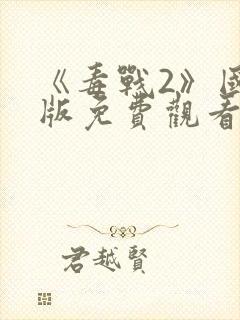 《毒戰2》國
版免費觀看
君越賢